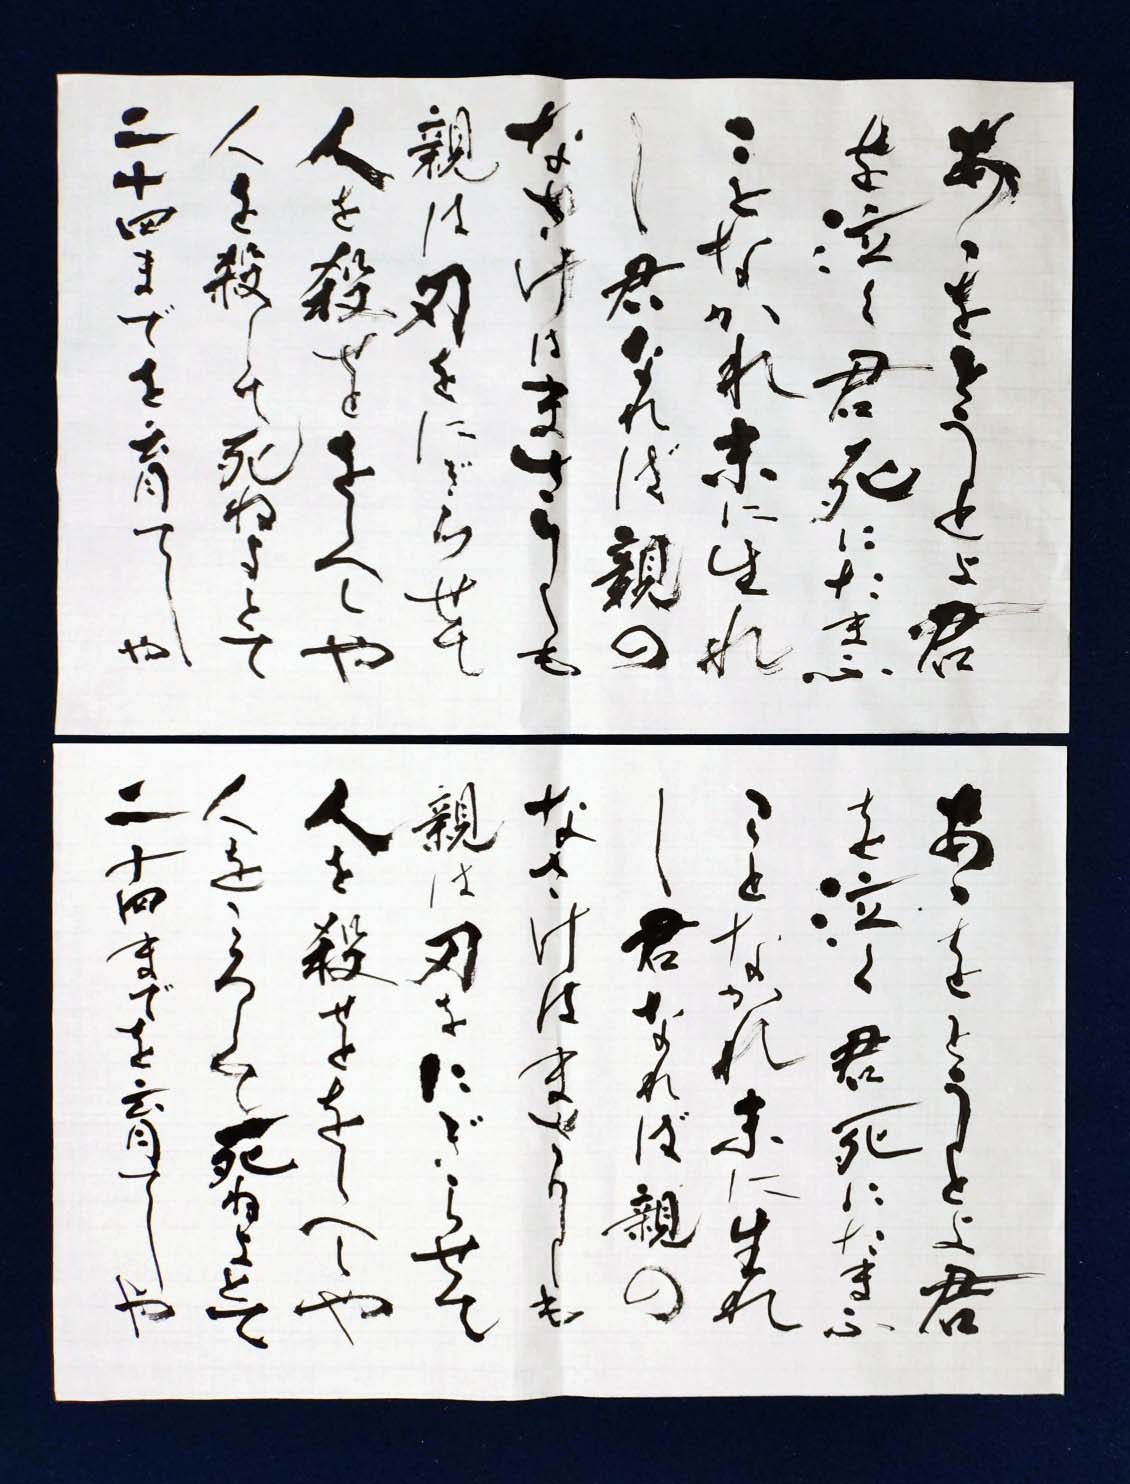 あゝをとうとよ君
を泣く君死にたまふ
ことなかれ末に生れ
し君なれば親の
なさけはまさりしも
親は刃をにぎらせて
人を殺せとをしへしや
人を殺して死ねよとて
二十四までを育てしや
あゝをとうとよ君
を泣く君死にたまふ
ことなかれ末に生れ
し君なれば親の
なさけはまさりしも
親は刃をにぎらせて
人を殺せとをしへしや
人をころして死ねよとて
二十四までを育てしや